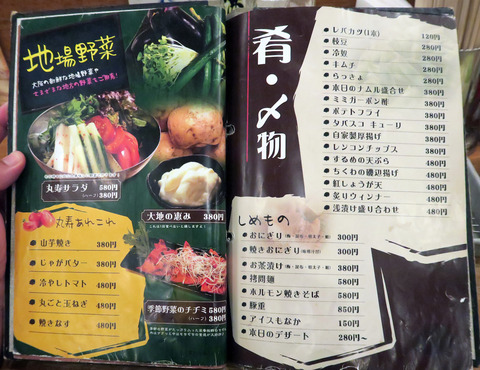 地場野菜
大阪の新鮮な地場野菜や
さまざまな地方の野菜をご用意!
丸寿サラダ 580円
(ハーフ) 380円
大地の恵み 380円
丸寿あれこれ
山芋焼き 380円
じゃがバター 380円
冷やしトマト 480円
丸ごと玉ねぎ 480円
焼きなす 480円
季節野菜のチヂミ 580円
(ハーフ) 380円
肴・〆物
レバカツ(1本) 120円
枝豆 280円
冷奴 280円
キムチ 280円
らっきょ 280円
本日のナムル盛合せ 380円
ミミガーポン酢 380円
ポテトフライ 380円
タバスコ キューリ 380円
自家製厚揚げ 380円
レンコンチップス 380円
するめの天ぷら 480円
ちくわの磯辺揚げ 480円
紅しょうが天 480円
炙りウィンナー 480円
浅漬け盛り合わせ 480円
しめもの
おにぎり(梅・昆布・明太子・鮭) 300円
焼きおにぎり 300円
お茶漬け(梅・昆布・明太子・鮭) 380円
拷問麺 500円
ホルモン焼きそば 580円
豚重 850円
アイスもなか 150円
本日のデザート 280円~